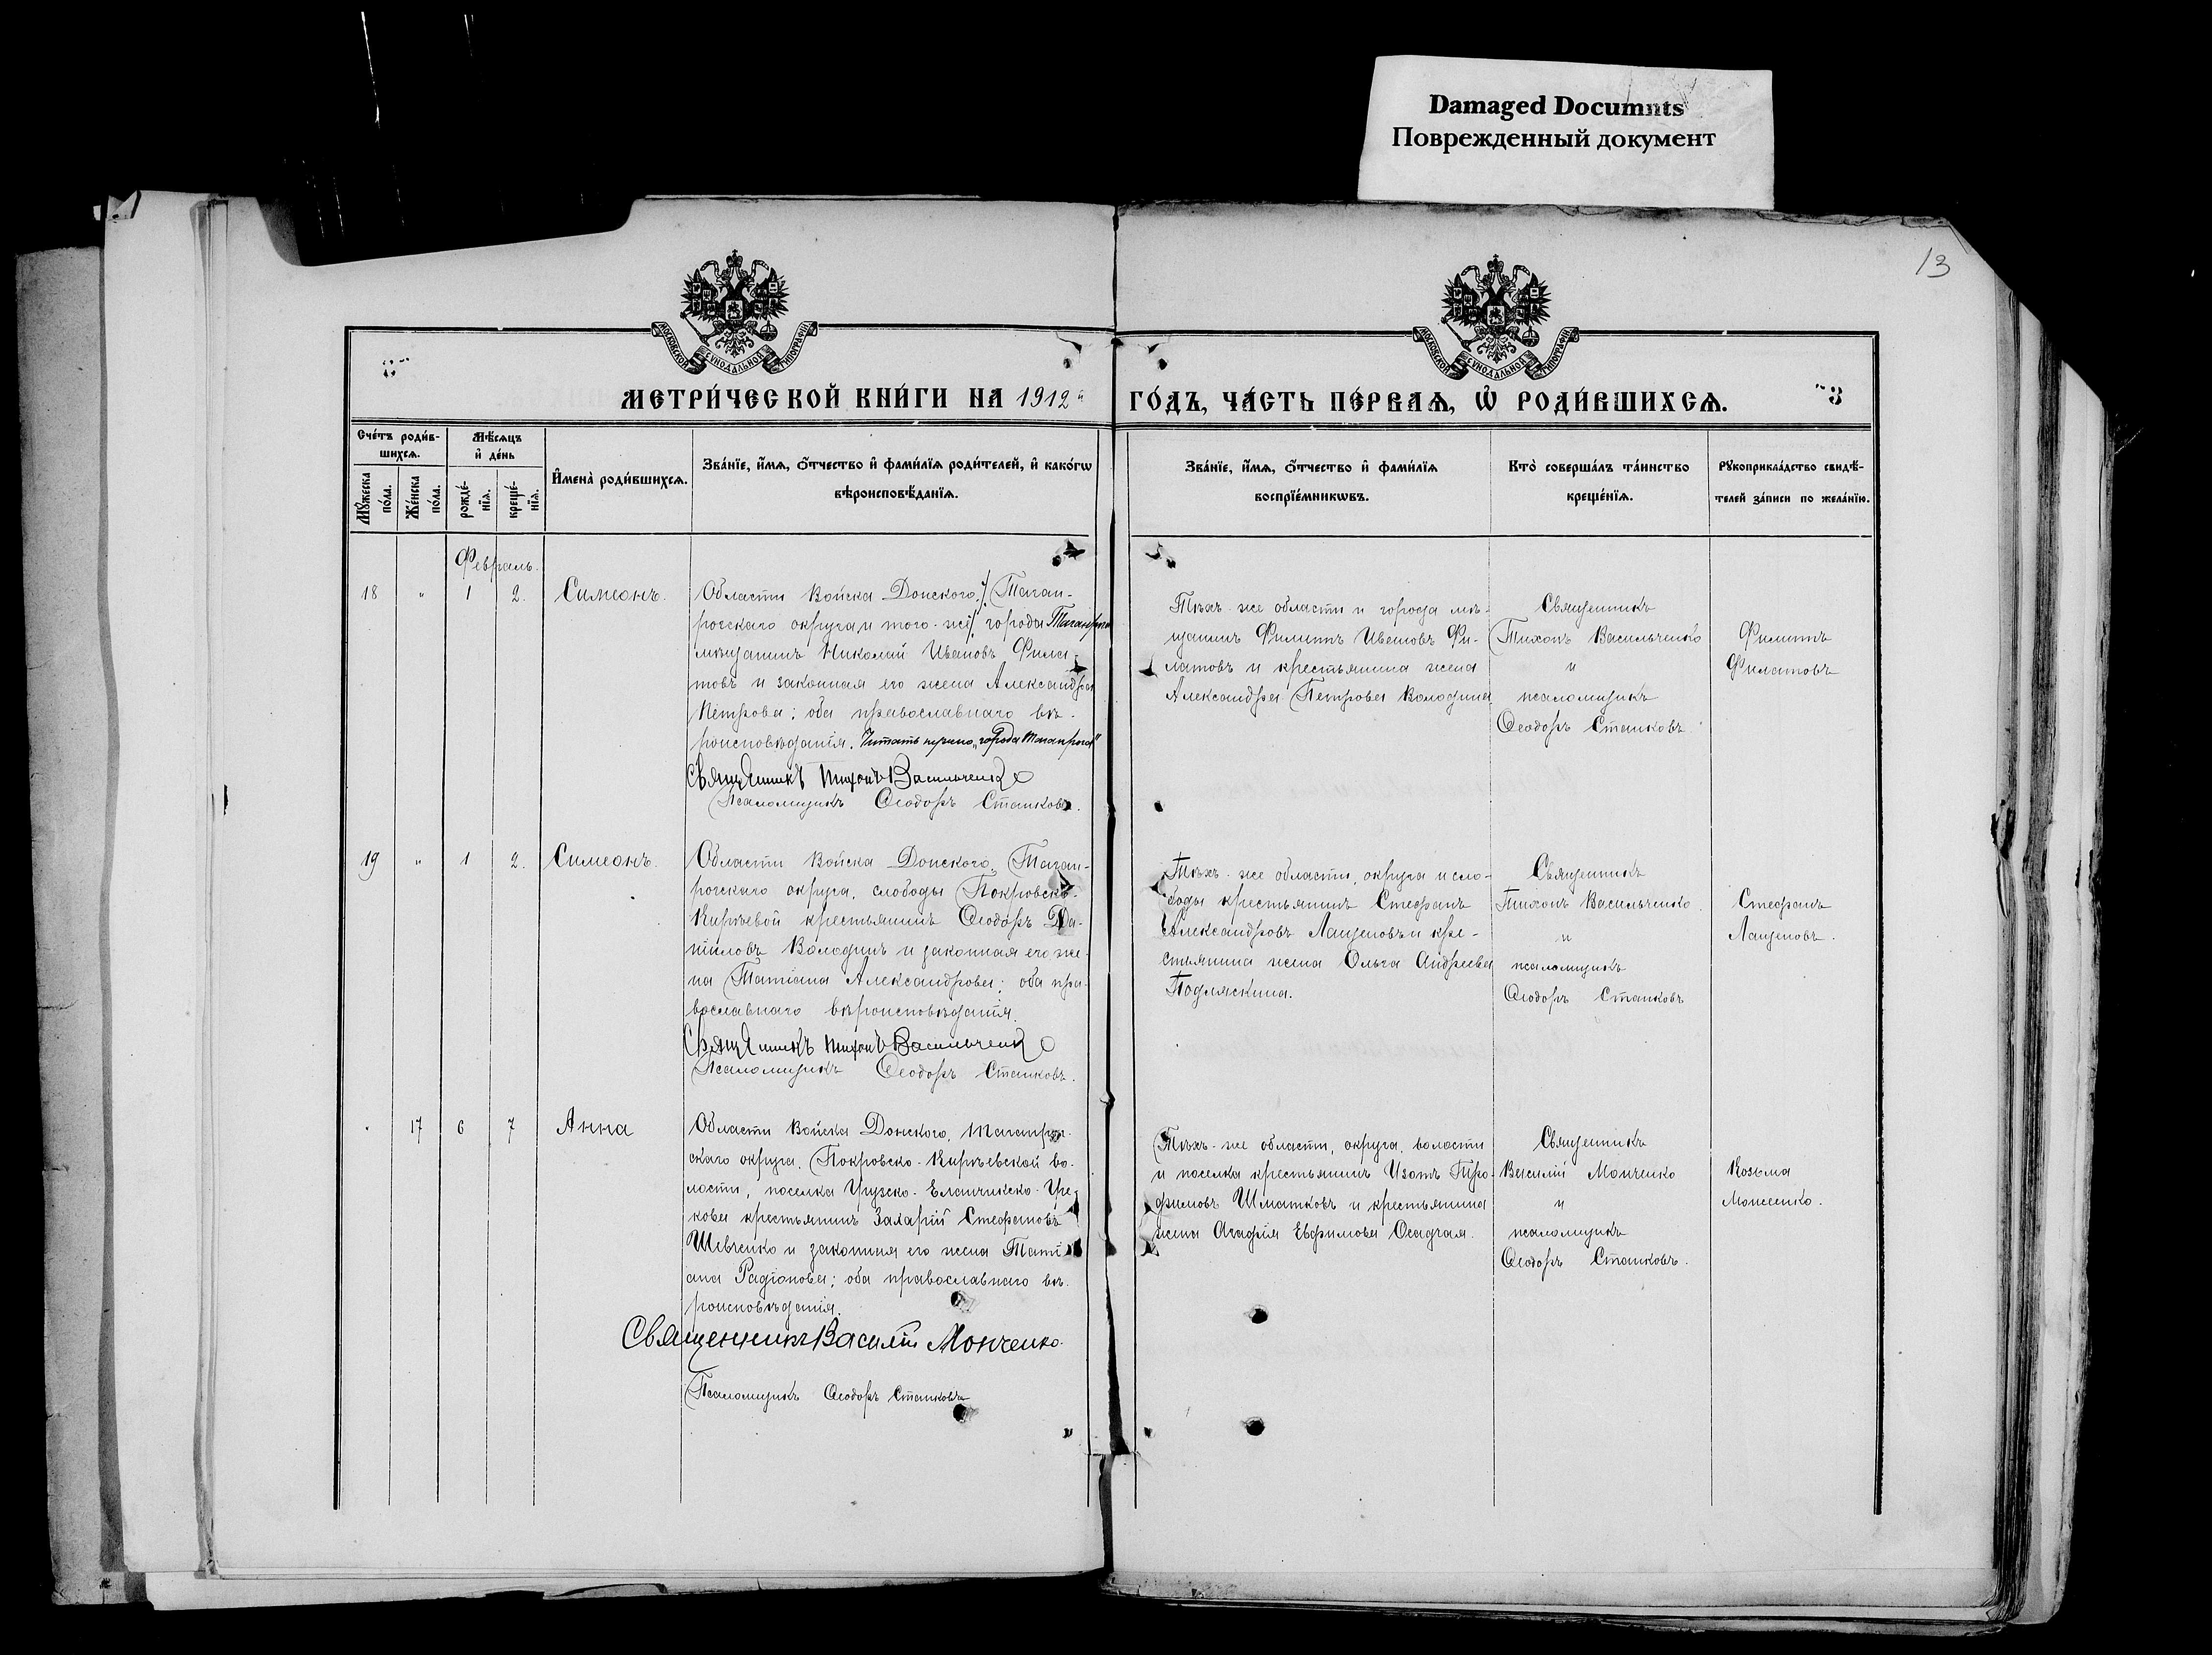 Damaged Documnts
Поврежденный документ
13
МОСКОВСКОЙ СѴНОДАЛЬНОЙ ТИПОГРАФІИ
МОСКОВСКОЙ СѴНОДАЛЬНОЙ ТИПОГРАФІИ
МЕТРИ́ЧЕСКОЙ КНИ́ГИ НА 1912
ГО́ДЪ, ЧА́СТЬ ПЕ́РВАѦ, Ѽ РОДИ́ВШИХСѦ.
3
Сче́тъ роди́в-
шихсѧ.
Мѣ́сѧцъ
и҆ де́нь
Мꙋ́жеска
по́ла.
Же́нска
по́ла.
рожде́-
нїѧ.
креще́-
нїѧ.
И҆мена̀ роди́вшихсѧ.
Зва́нїе, и҆́мѧ, ѻ҆́тчество и҆ фами́лїѧ роди́телей, и҆ како́гѡ
вѣроисповѣ́данїѧ.
Зва́нїе, и҆́мѧ, ѻ҆́тчество и҆ фами́лїѧ
воспрїе́мникѡвъ.
Кто̀ соверша́лъ та́инство
креще́нїѧ.
Рꙋкоприкла́дство свидѣ́-
телей за́писи по жела́нїю.
Февраль.
18 " 1 2. Симеонъ.
Области Войска Донского, Таган-
рогскаго округа и того-же города Таганрога
мѣщанинъ Николай Ивановъ Фила-
товъ и законная его жена Александра
Петрова; оба православнаго вѣ-
роисповѣданія. Читать нужно „города Таганрога"
Священникъ Тихонъ Васильченко
Псаломщикъ Ѳеодоръ Сташковъ.
Тѣхъ-же области и города мѣ-
щанинъ Филиппъ Ивановъ Фи-
латовъ и крестьянина жена
Александра Петрова Володина
Священникъ
Тихонъ Васильченко
и
псаломщикъ
Ѳеодоръ Сташковъ
Филиппъ
Филатовъ
19 " 1 2. Симеонъ.
Области Войска Донского, Таган-
рогскаго округа, слободы Покровско-
Кирѣевой крестьянинъ Ѳеодоръ Да-
ніиловъ Володинъ и законная его же-
на Татіана Александрова; оба пра-
вославнаго вѣроисповѣданія.
Священникъ Тихонъ Васильченко
Псаломщикъ Ѳеодоръ Сташковъ.
Тѣхъ-же области, округа и сло-
боды крестьянинъ Стефанъ
Александровъ Лащеновъ и кре-
стьянина жена Ольга Андреева
Подляскина.
Священникъ
Тихонъ Васильченко.
и
псаломщикъ
Ѳеодоръ Сташковъ
Стефанъ
Лащеновъ.
17 6 7 Анна
Области Войска Донского, Таганрог-
скаго округа, Покровско-Кирѣевской во-
лости, поселка Грузско-Еланчикско-
крестьянинъ Захарій Стефановъ
Шевченко и законная его жена Таті-
ана Радіонова; оба православнаго вѣ-
роисповѣданія.
Священникъ Василій Монченко.
Псаломщикъ Ѳеодоръ Сташковъ
Тѣхъ-же области, округа, волости
и поселка крестьянинъ Изотъ Тро-
фимовъ Шматковъ и крестьянина
жена Агафія Евфимова Осадчая.
Священникъ
Василій Монченко
и
псаломщикъ
Ѳеодоръ Сташковъ.
Козьма
Моисеенко.